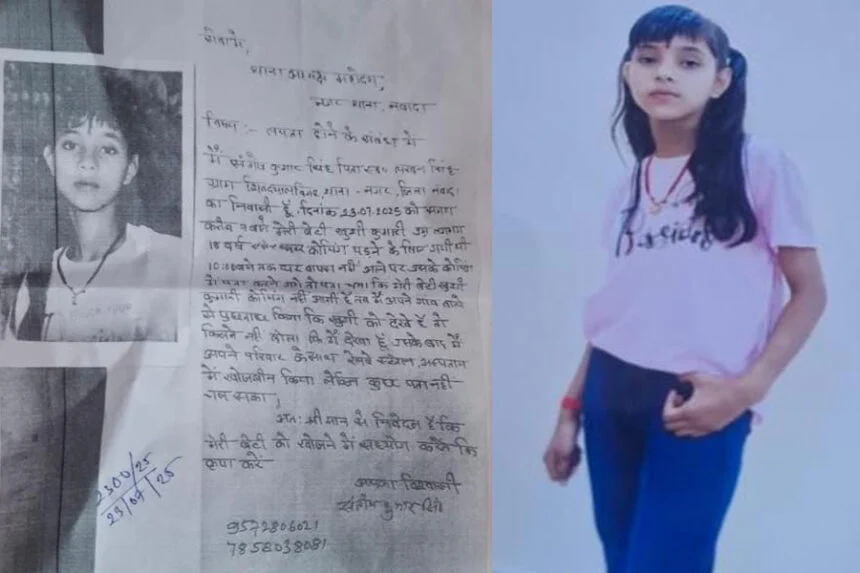 सेवा में,
थाना अध्यक्ष महोदय,
नगर थाना, नवादा
विषय :- लापता होने के संबंध में
मैं संजीव कुमार सिंह पिता स्व० लखन सिंह
ग्राम थाना - नगर, जिला नवादा
का निवासी हूँ, दिनांक 23.07.2025 को समय
करीब 7 बजे मेरी बेटी खुशी कुमारी उम्र लगभग
18 वर्ष कोचिंग पढ़ने के लिए गयी थी
10:00 बजे तक घर वापस नहीं आने पर उसके कोचिंग
में पता करने गये तो पता चला कि मेरी बेटी खुशी
कुमारी कोचिंग नहीं आयी है, तब मैं अपने गांव वालो
से पुछताछ किया कि खुशी को देखे है तो
किसी ने नहीं बोला कि मैं देखा हूं उसके बाद मैं
अपने परिवार के साथ रेलवे स्टेशन, अस्पताल
में खोजबीन किया लेकिन कुछ पता नहीं
चल सका,
अतः श्रीमान से निवेदन है कि
मेरी बेटी को खोजने में सहयोग करने कि
कृपा करें
आपका विश्वासी
संजीव कुमार सिंह
9572806021
7858038081
2300/25
23/07/25
Besides